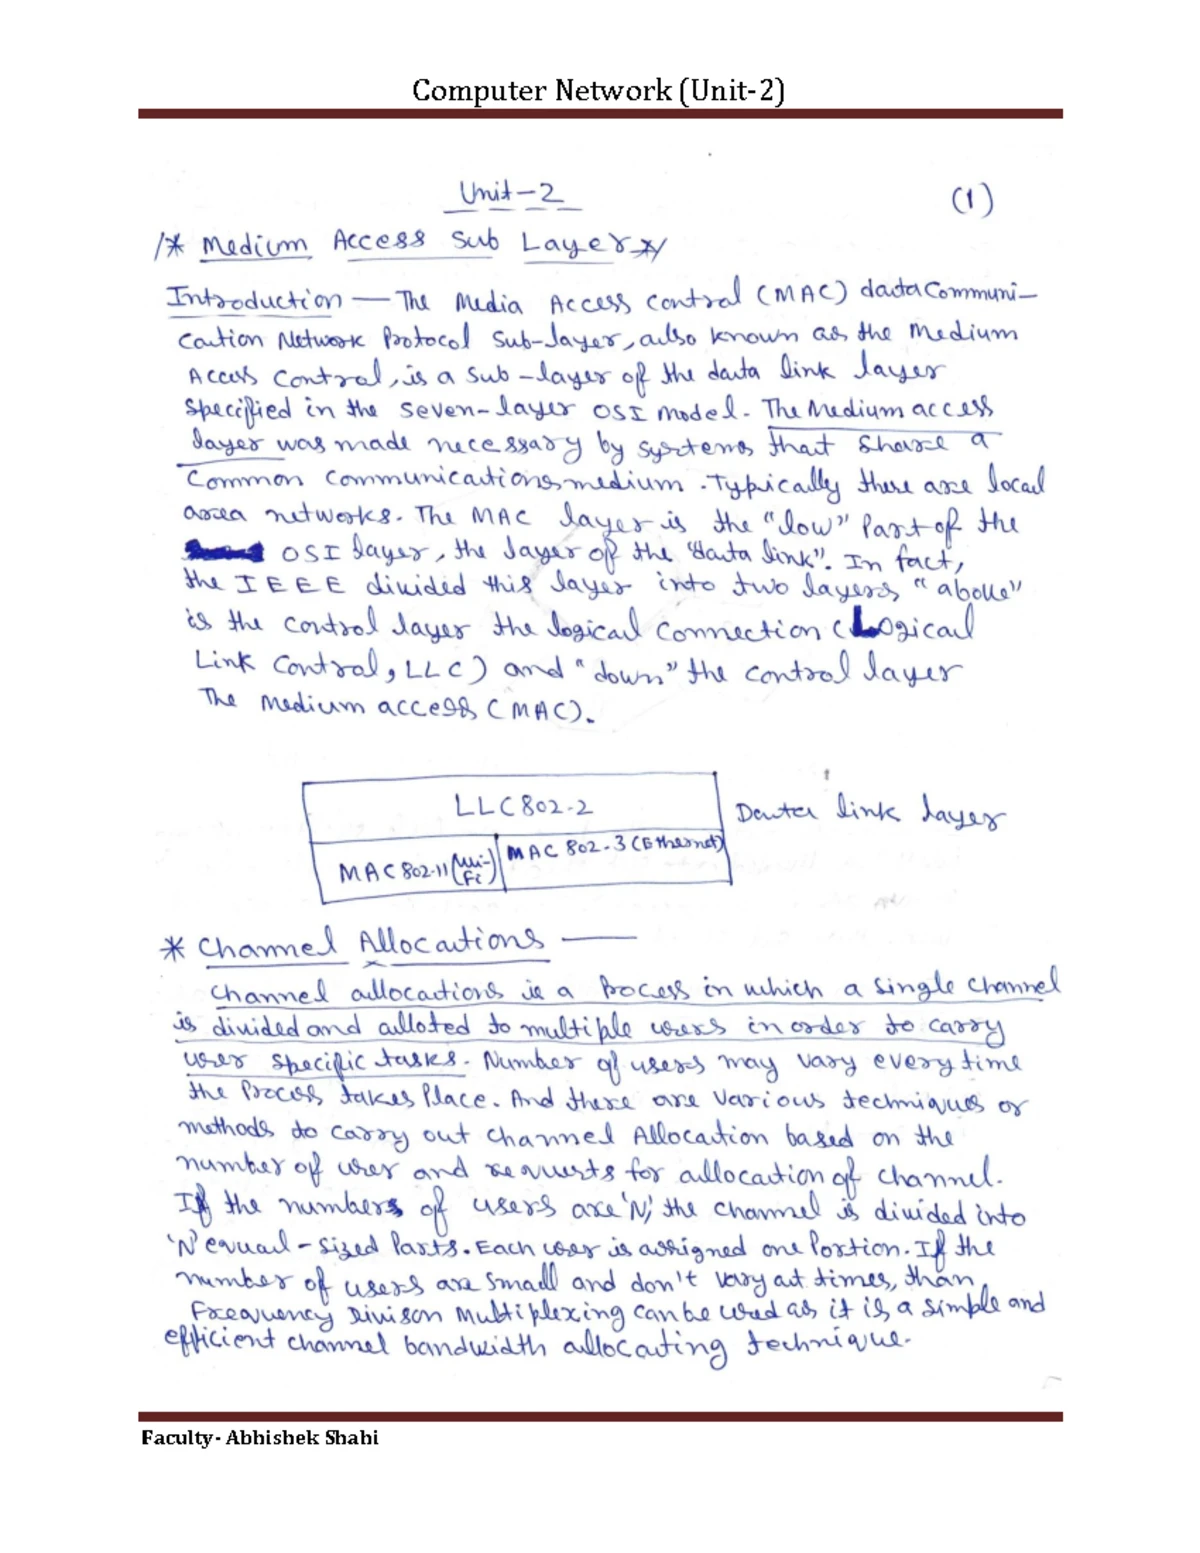 Computer Network (Unit-2)
Unit-2
(1)
/* Medium Access Sub Layer */
Introduction — The Media Access Control (MAC) data Communi-
cation Network Protocol Sub-layer, also known as the Medium
Access Control, is a sub-layer of the data link layer
specified in the seven-layer OSI model. The Medium access
layer was made necessary by systems that share a
Common Communications medium. Typically there are local
area networks. The MAC layer is the "low" Part of the
OSI layer, the layer of the "data link". In fact,
the IEEE divided this layer into two layers "above"
is the control layer the logical connection (Logical
Link Control, LLC) and "down" the control layer
The Medium access (MAC).
LLC 802-2
Data link layer
MAC 802-11 (Wi-Fi)
MAC 802-3 (Ethernet)
* Channel Allocations —
Channel allocations is a Process in which a single channel
is divided and alloted to multiple users in order to carry
user specific tasks. Number of users may vary every time
the Process takes Place. And there are various techniques or
methods to carry out channel Allocation based on the
number of user and requests for allocation of channel.
If the numbers of users are 'N', the channel is divided into
'N' equal-sized Parts. Each user is assigned one Portion. If the
number of users are small and don't vary at times, than
Frequency Divison Multiplexing can be used as it is a simple and
efficient channel bandwidth allocating technique.
Faculty- Abhishek Shahi